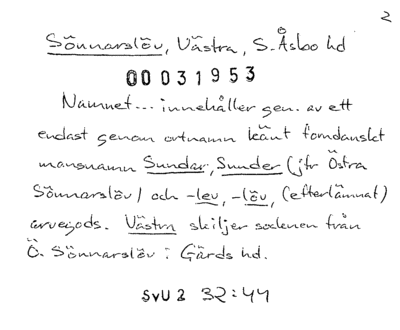 2
Sönnarslöv, Västra, S. Åsbo hd
00031953
Namnet... innehåller gen. av ett
endast genom ortnamn känt forndanskt
mansnamn Sundar, Sunder (jfr Östra
Sönnarslöv) och -lev, -löv, (efterlämnat)
arvegods. Västra skiljer socknen från
Ö. Sönnarslöv i Gärds hd.
SvU 2 32:44